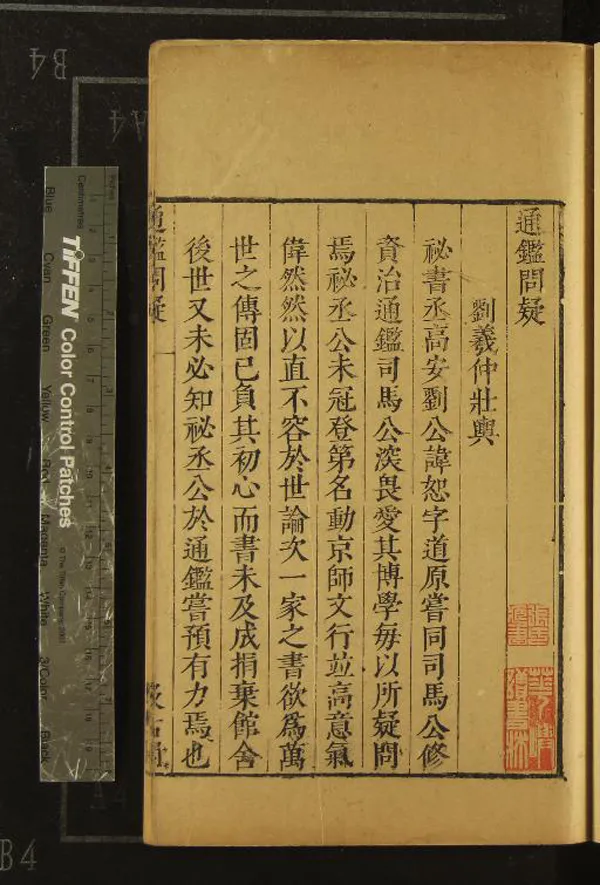 通鑑問疑
劉羲仲壯輿
祕書丞高安劉公諱恕字道原嘗同司馬公修
資治通鑑司馬公深畏愛其博學每以所疑問
焉祕丞公未冠登第名動京師文行並高意氣
偉然然以直不容於世論次一家之書欲爲萬
世之傳固已負其初心而書未及成捐棄館舍
後世又未必知祕丞公於通鑑嘗預有力焉也
通鑑問疑
一
汲古閣
B4
A4
B4
Inches
Centimetres
TIFFEN Color Control Patches
© The Tiffen Company, 2007
Blue
Cyan
Green
Yellow
Red
Magenta
White
3/Color
Black